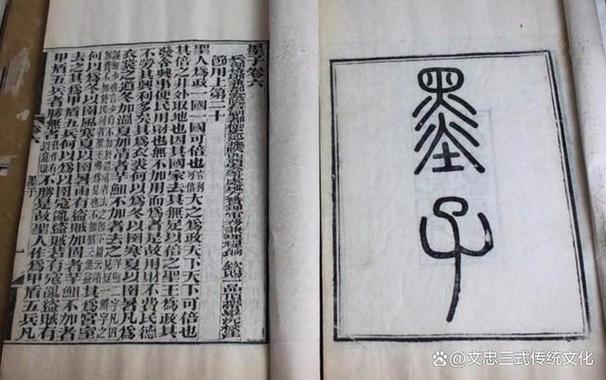 墨子卷六
節用上第二十
聖人爲政一國一國可倍也大之爲政天下天下可倍也
其倍之非外取地也因其國家去其無足以倍之聖王爲政其
發令興事使民用財也無不加用而爲者是故用財不費民德
不勞其興利多矣其爲衣裘何以爲冬以圉寒夏以圉暑凡爲
衣裳之道冬加溫夏加凊者芊䱉不加者去之
其爲宮室
何以爲冬以圉風寒夏以圉暑雨有盜賊加固者芊䱉不加者
去之其爲甲盾五兵何以爲以圉寇亂盜賊若有寇亂盜賊有
甲盾五兵者勝無者不勝是故聖人作爲甲盾五兵凡
墨子
墨子
@文忠三式传统文化